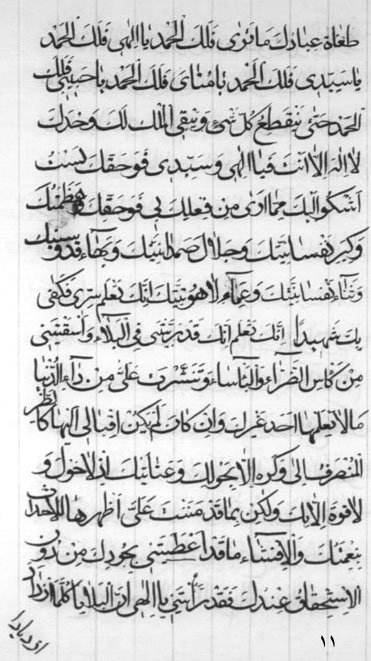 طغاة عبادك ما ترى فلك الحمد يا الهي فلك الحمد
يا سيدي فلك الحمد يا مناي فلك الحمد يا حبيبي فلك
الحمد حتى ينقطع كل شيء ويبقى الملك لك وحدك
لا اله الا انت فيا الهي وسيدي فوحقك لست
اشكو اليك مما ارى من فعلك بي فوحقك وعظمتك
وكبر نفسانيتك وجلال صمدانيتك وبهاء قدوسيتك
وثناء نفسانيتك وعماء لاهوتيتك انك تعلم سري فكفى
بك شهيدا انك تعلم انك قد ربيتني في البلاء واسقيتني
من كاس الضراء والباساء ونشرت علي من داء الدنيا
ما لا يعلمها احد غيرك وان كان لم يكن اقبالي اليها كا نظر
المنصرف الي وكره الا بحولك وعنايتك اذ لا حول و
لا قوة الا بك ولكن بما قد مننت علي اظهرها للاحدان
بنعمتك والاقتناء ما قد اعطيتني بجودك من دون
الاستحقاق عندك فقد رايتني يا الهي ان البلايا كلما ازداد
ازديادا
١١